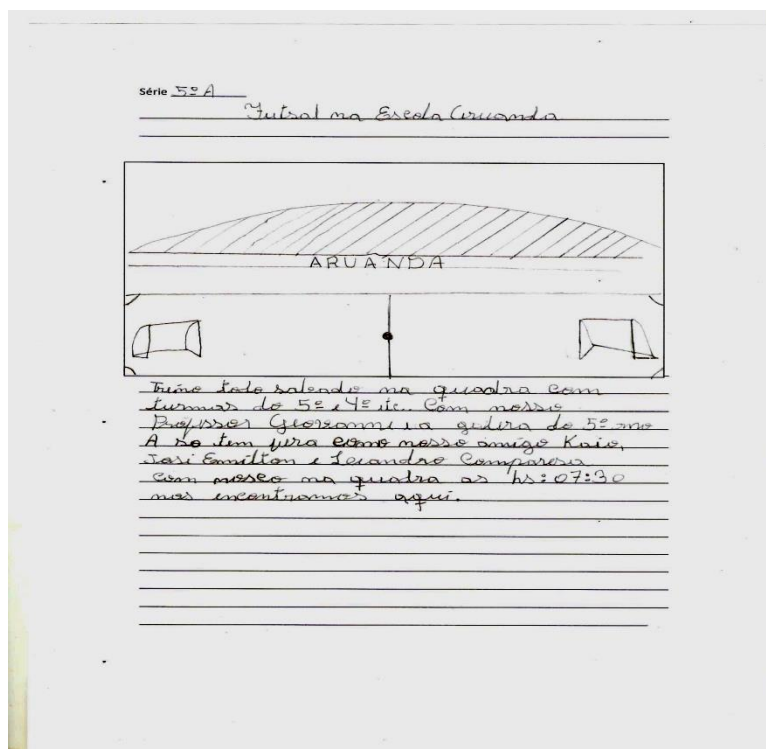 Série 5º A
Futsal na Escola Aruanda
ARUANDA
Treino todo sabado na quadra com
turmas do 5º e 4º etc. Com nosso
Professor Geovanne e a galera do 5º ano
A so tem fera como nosso amigo Kaio,
José Emilton e Leandro Comparesa
com nosco na quadra as hs: 07:30
nos encontramos aqui.